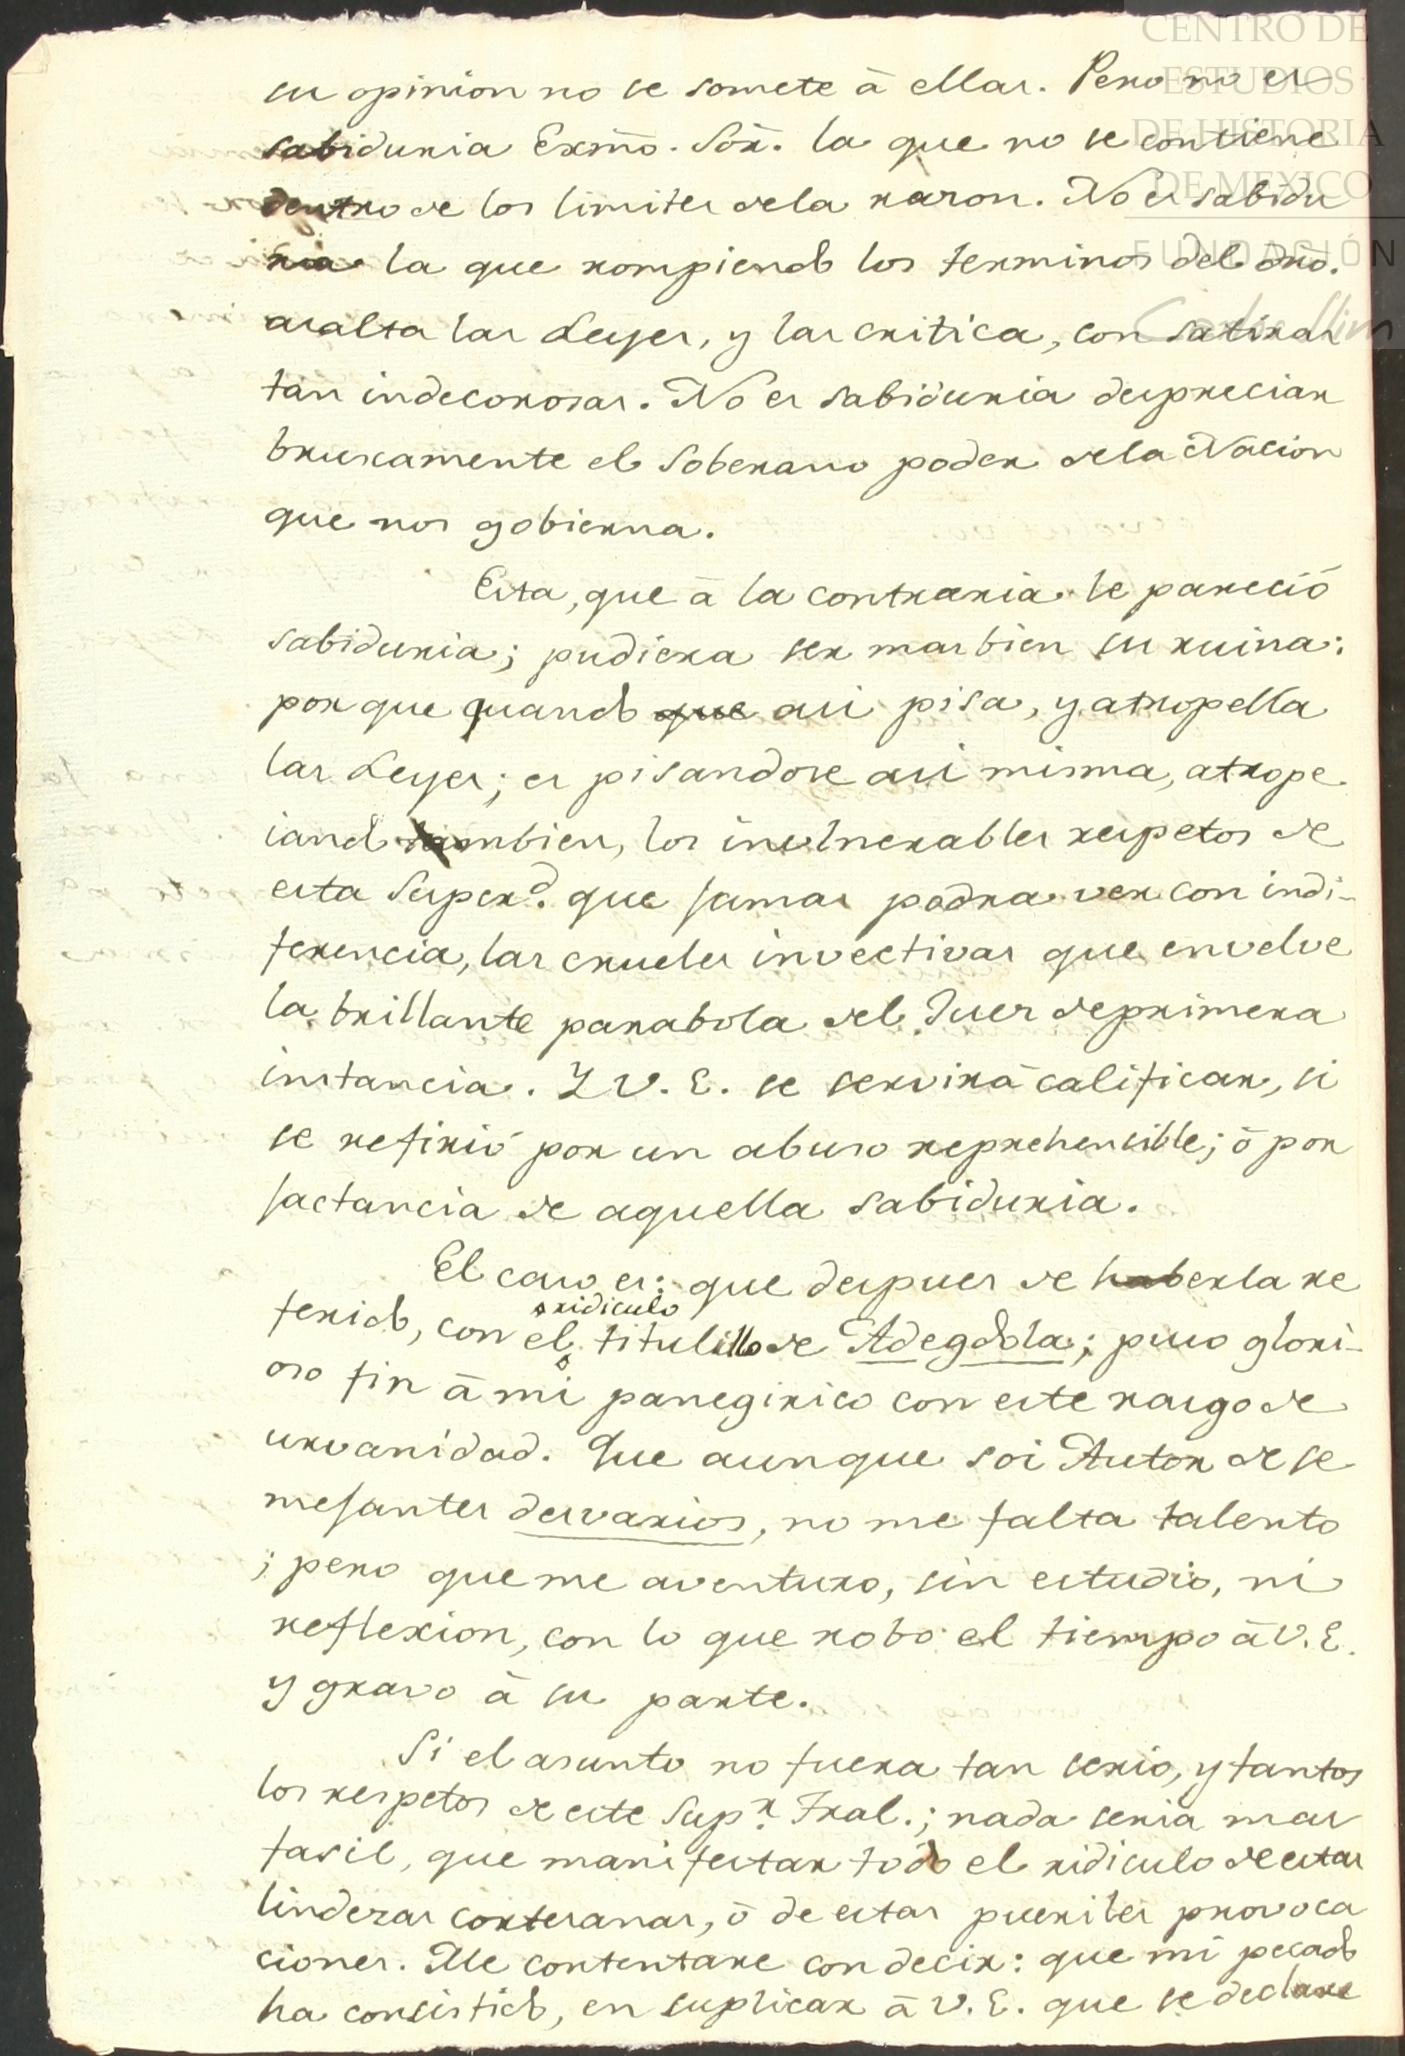 CENTRO DE
ESTUDIOS
DE HISTORIA
DE MEXICO
FUNDACIÓN
Carlos Slim
su opinion no se somete â ellas. Pero no es
sabiduria Exmõ. Sõr. la que no se contiene
dentro de los limites dela razon. No es sabidu
ria la que rompiendo los terminos del dro.
asalta las Leyes, y las critica, con satiras
tan indecorosas. No es sabiduria despreciar
bruscamente el Soberano poder dela Nacion
que nos gobierna.
Esta, que â la contraria le pareciò
sabiduria; pudiera ser mas bien su ruina:
por que quando que asi pisa, y atropella
las Leyes; es pisandose asi misma, atrope
iando tambien, los invulnerables respetos de
esta Superd. que jamas podra ver con indi-
ferencia, las crueles invectivas que envelve
la brillante parabola del Juez deprimera
instancia. Y V. E. se servirâ calificar, si
se refiriò por un abuso reprehensible; ô por
jactancia de aquella sabiduria.
El caso es: que despues de haberla re
ridiculo
ferido, con el titulillo de Adegdola; puso glori-
oso fin â mi panegirico con este rasgo de
urvanidad. Que aunque soi Autor de se
mejantes desvarios, no me falta talento
; pero que me aventuro, sin estudio, ni
reflexion, con lo que robo el tiempo â V. E.
y gravo â su parte.
Si el asunto no fuera tan serio, y tantos
los respetos de este Supr. Tral.; nada seria mas
fasil, que manifestar todo el ridiculo de estas
lindezas cortesanas, ô de estas pueriles provoca
ciones. Me contentare con decir: que mi pecado
ha consistido, en suplicar â V. E. que se declare